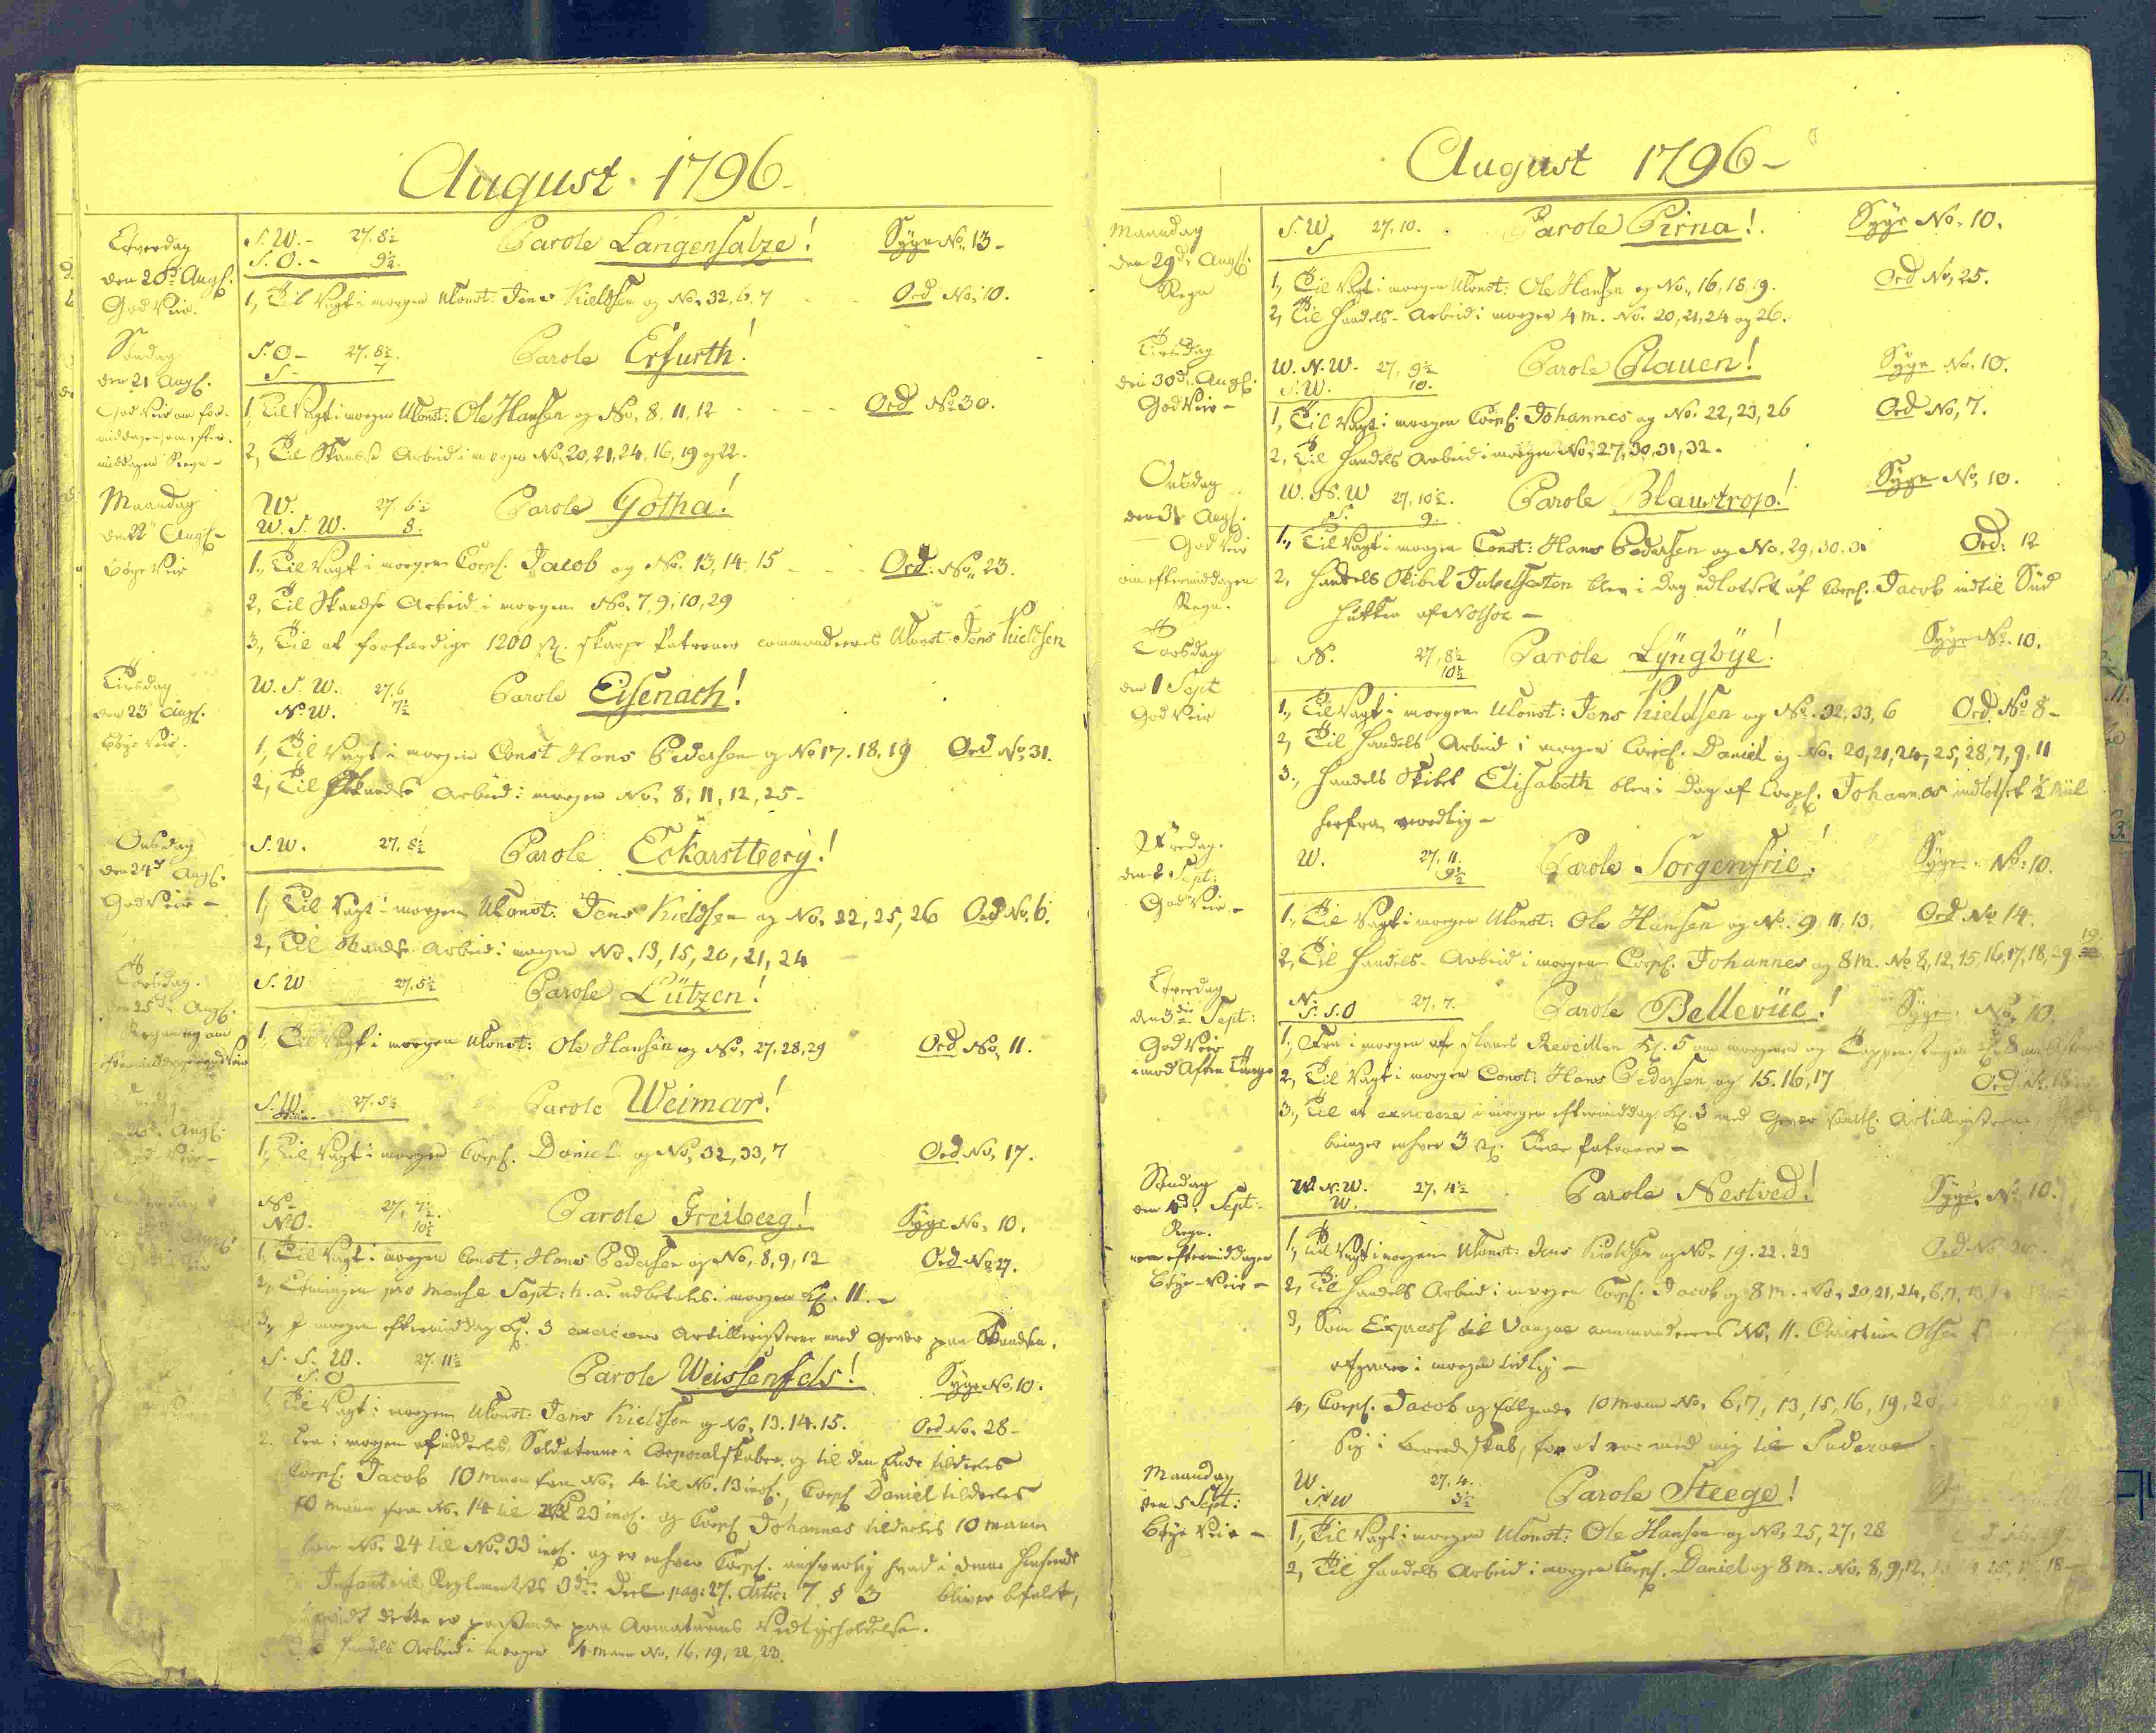 August 1796
Løverdag
den 20de Augs.
God Veir.
S. W. - 27. 8½
S. O. - 9½.
Parole Langensalze!
Syge No. 13 -
1, Til Vagt i morgen UConst: Jens Kieldsen og No. 32, 6, 7
Ord No. 10.
Søndag
den 21 Augs.
God Veir om for-
middagen, om efter-
middagen Regn -
S. O - 27. 8½.
S - 7
Parole Erfurth!
1, Til Vagt i morgen UConst: Ole Hansen og No. 8, 11, 12
Ord No 30.
2, Til Skandse Arbeid i morgen No. 20, 21, 24, 16, 19 og 22.
Maandag
den 22 Augs -
Bøye Veir
W. 27. 6½
W. S. W. 8.
Parole Gotha!
1., Til Vagt i morgen Corpl. Jacob og No. 13, 14, 15
Ord: No. 23.
2, Til Skandse Arbeid i morgen No. 7, 9, 10, 29
3., Til at forfærdige 1200 st. skarpe Patroner commanderes UConst. Jens Kieldsen
Tirsdag
den 23 Augs.
Bøye Veir.
W. S. W. 27. 6
N. W. 7½
Parole Eisenach!
1, Til Vagt i morgen Const Hans Pedersen og No 17. 18, 19
Ord No. 31.
2, Til Skandse Arbeid i morgen No. 8, 11, 12, 25 -
Onsdag
den 24d Augs.
God Veir -
S. W. 27. 8½
Parole Eckarstberg!
1, Til Vagt i morgen UConst: Jens Kieldsen og No. 22, 25, 26
Ord No. 6.
2, Til Skandse Arbeid i morgen No. 13, 15, 20, 21, 24
Torsdag.
den 25de Augs.
S. W 27. 5½
Parole Lützen!
1, Til Vagt i morgen UConst: Ole Hansen og No. 27, 28, 29
Ord No. 11.
S. W. 27. 5½
Parole Weimar!
1, Til Vagt i morgen Corpl. Daniel og No. 32, 33, 7
Ord No. 17.
N. 27, 7½.
N. O. 10½
Parole Freiberg!
Syge No. 10.
1, Til Vagt i morgen Const: Hans Pedersen og No. 8, 9, 12
Ord No 27.
2, Lønningen pro Mense Sept: h. a. udbetales i morgen Kl. 11. -
3, I morgen eftermiddag Kl. 3 exercerer Artilleristerne med Gevær paa Skandsen.
S. S. W. 27. 11½
S. O
Parole Weissenfels!
Syge No. 10.
1, Til Vagt i morgen UConst: Jens Kieldsen og No. 13. 14. 15.
Ord No. 28 -
2. Fra i morgen afinddeeles Soldaterne i Corporalskaber, og til den Ende tildeeles
Corpl. Jacob 10 Mann fra No. 4 til No. 13 incl., Corpl Daniel tildeeles
10 mann fra No. 14 til 23 incl. og Corpl Johannes tildeeles 10 mann
fra No. 24 til No. 33 incl. og er enhver Corpl. ansvarlig hvad i denne Henseende
Infanterie Reglementets 3die Deel pag: 27. Artic: 7 § 3 bliver befalet,
dette er passende paa Armaturens Vedligeholdelse.
Handels Arbeid i morgen 4 mann No. 16, 19, 22, 23.
August 1796 -
Maandag
den 29de Augs.
Regn
S. W. 27, 10.
S
Parole Pirna!
Syge No. 10.
1, Til Vagt i morgen UConst: Ole Hansen og No. 16, 18, 19.
Ord No, 25.
2, Til Handels - Arbeid i morgen 4 m. No. 20, 21, 24 og 26.
Tirsdag
den 30de Augs.
God Veir -
W. N. W. 27, 9½
S. W. 10.
Parole Plauen!
Syge No. 10.
1, Til Vagt i morgen Corpl. Johannes og No. 22, 23, 26
Ord No, 7.
2, Til Handels Arbeid i morgen No. 27, 30, 31, 32.
Onsdag
den 31 Augs.
God Veir
om eftermiddagen
Regn.
W. N. W 27, 10½.
S. 9.
Parole Blaustrop!
Syge No. 10.
1., Til Vagt i morgen Const: Hans Pedersen og No. 29, 30, 31
Ord: 12
2, Handels Skibet Jubelfesten blev i Dag udlodset af Corpl. Jacob indtil Syd
Hukken af Nolsoe -
Torsdag
den 1 Sept
God Veir
N. 27, 8½
10½
Parole Lyngbye!
Syge No. 10.
1., Til Vagt i morgen UConst: Jens Kieldsen og No. 32, 33, 6
Ord. No 8 -
2, Til Handels Arbeid i morgen Corpl. Daniel og No. 20, 21, 24, 25, 28, 7, 9, 11
3., Handels Skibet Elisabeth blev i Dag af Corpl. Johannes indlodset ½ Miil
herfra nordlig -
Fredag.
den 2 Sept:
God Veir. -
W. 27. 11.
9½
Parole Sorgenfrie!
Syge. No: 10.
1., Til Vagt i morgen UConst: Ole Hansen og No. 9, 11, 13.
Ord No 14.
2, Til Handels - Arbeid i morgen Corpl. Johannes og 8 m. No 8, 12, 15, 16, 17, 18, 29, 19.
Løverdag
den 3die Sept:
God Veir
imod Aften Taage
N.
S. S. O 27. 7.
Parole Bellevüe!
Syge. No. 10.
1, Fra i morgen af slaaes Reveillen Kl. 5 om morgenen og Tappenstregen Kl 8 om Aftenen
2, Til Vagt i morgen Const: Hans Pedersen og 15. 16, 17
Ord. No. 18.
3., Til at exercere i morgen eftermiddag Kl. 3 med Gevær samtl. Artilleristerne
bringer enhver 3 st. Patroner -
Søndag
den 4de Sept:
Regn.
om eftermiddagen
Bøye - Veir -
W. N. W. 27. 4½
W.
Parole Nestved!
Syge No 10.
1, Til Vagt i morgen UConst: Jens Kieldsen og No. 19. 22. 23
Ord No.
2, Til Handels Arbeid i morgen Corpl. Jacob og 8 m. No. 20, 21, 24, 6, 7, 13
3, Som Express til Vaagoe commanderes No. 11. Christian Olsen
afgaaer i morgen tidlig -
4, Corpl. Jacob og følgende 10 Mann No. 6, 7, 13, 15, 16, 19, 20
sig i Beredskab, for at roe med mig til Suderoe
Maandag
den 5 Sept:
Bøye Veir -
W. 27. 4.
S. W 3½
Parole Steege!
1, Til Vagt i morgen UConst: Ole Hansen og No. 25, 27, 28
2, Til Handels Arbeid i morgen Corpl. Daniel og 8 m. No. 8, 9, 12, 18 -